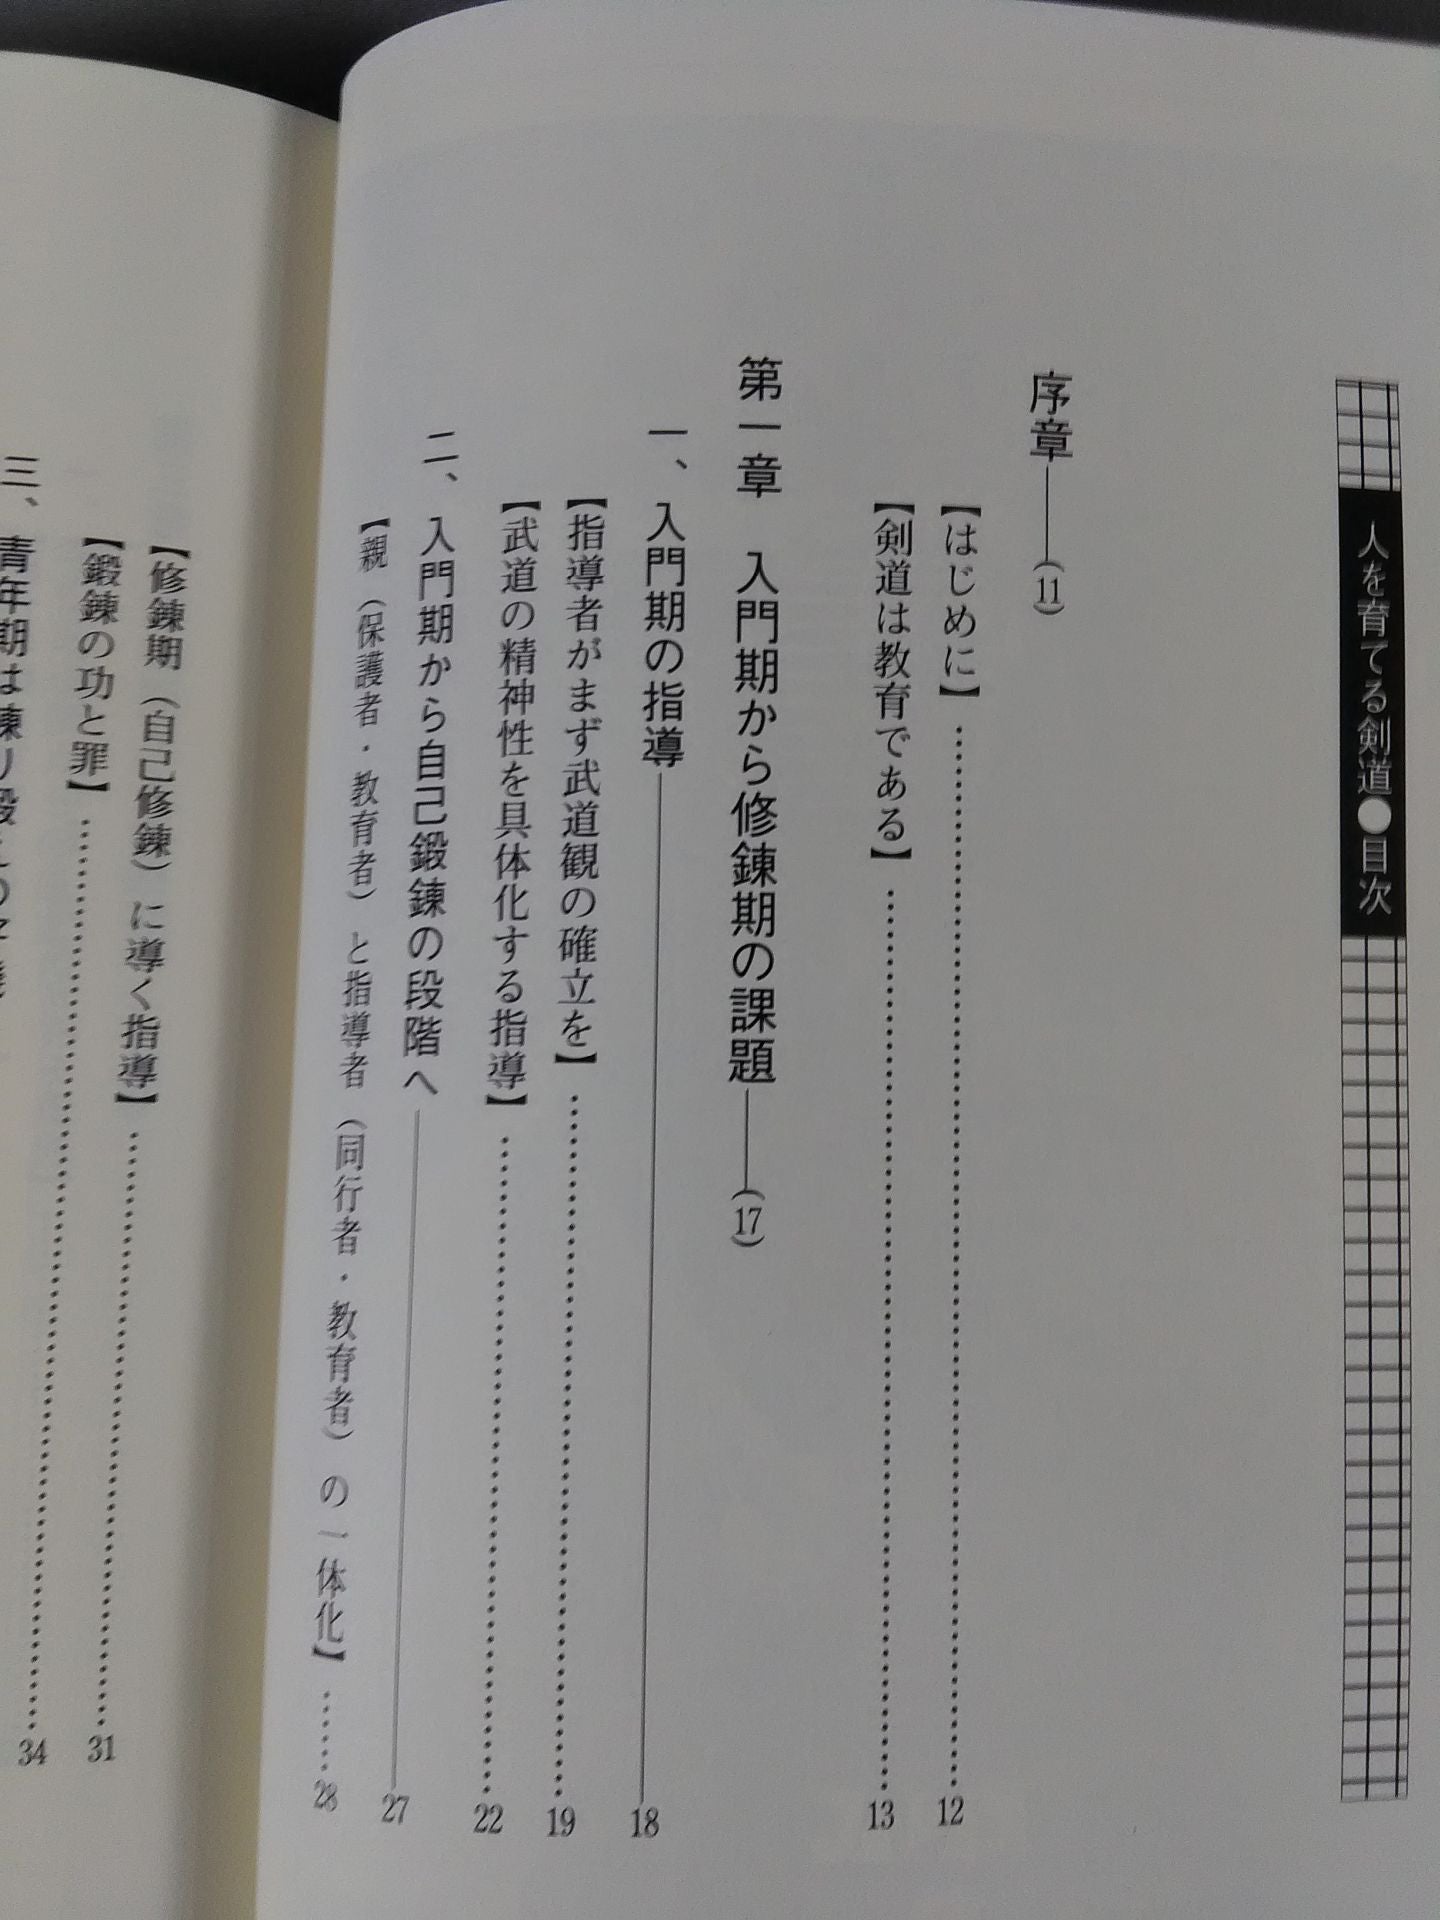 人を育てる剣道●目次
序章――(11)
【はじめに】……12
【剣道は教育である】……13
第一章 入門期から修錬期の課題――(17)
一、入門期の指導――18
【指導者がまず武道観の確立を】……19
【武道の精神性を具体化する指導】……22
二、入門期から自己鍛錬の段階へ――27
【親（保護者・教育者）と指導者（同行者・教育者）の一体化】……28
【修錬期（自己修錬）に導く指導】……31
【鍛錬の功と罪】……34
三、青年期は練り鍛えの